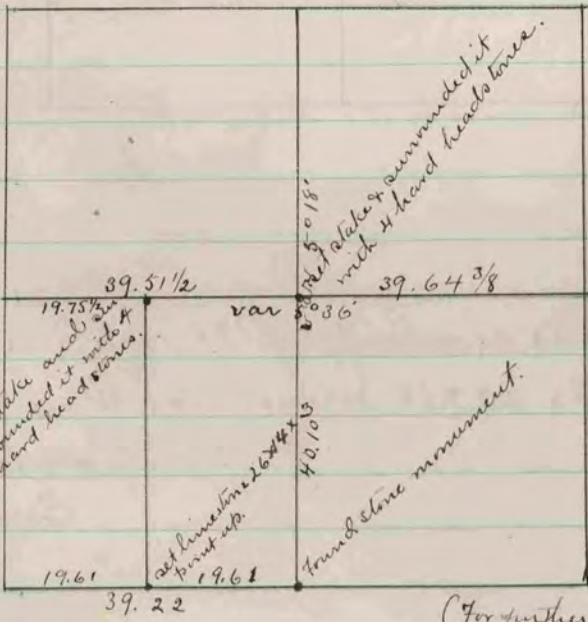 set stake & surrounded it
with 4 hard headstones.
var 5° 18'
39.51 1/2
39.64 3/8
19.75 1/2
var 5° 36'
stake and sur
rounded it with 4
hard headstones.
40.103
set limestone 26x14x
point up.
Found stone monument.
19.61
19.61
39.22
(For further